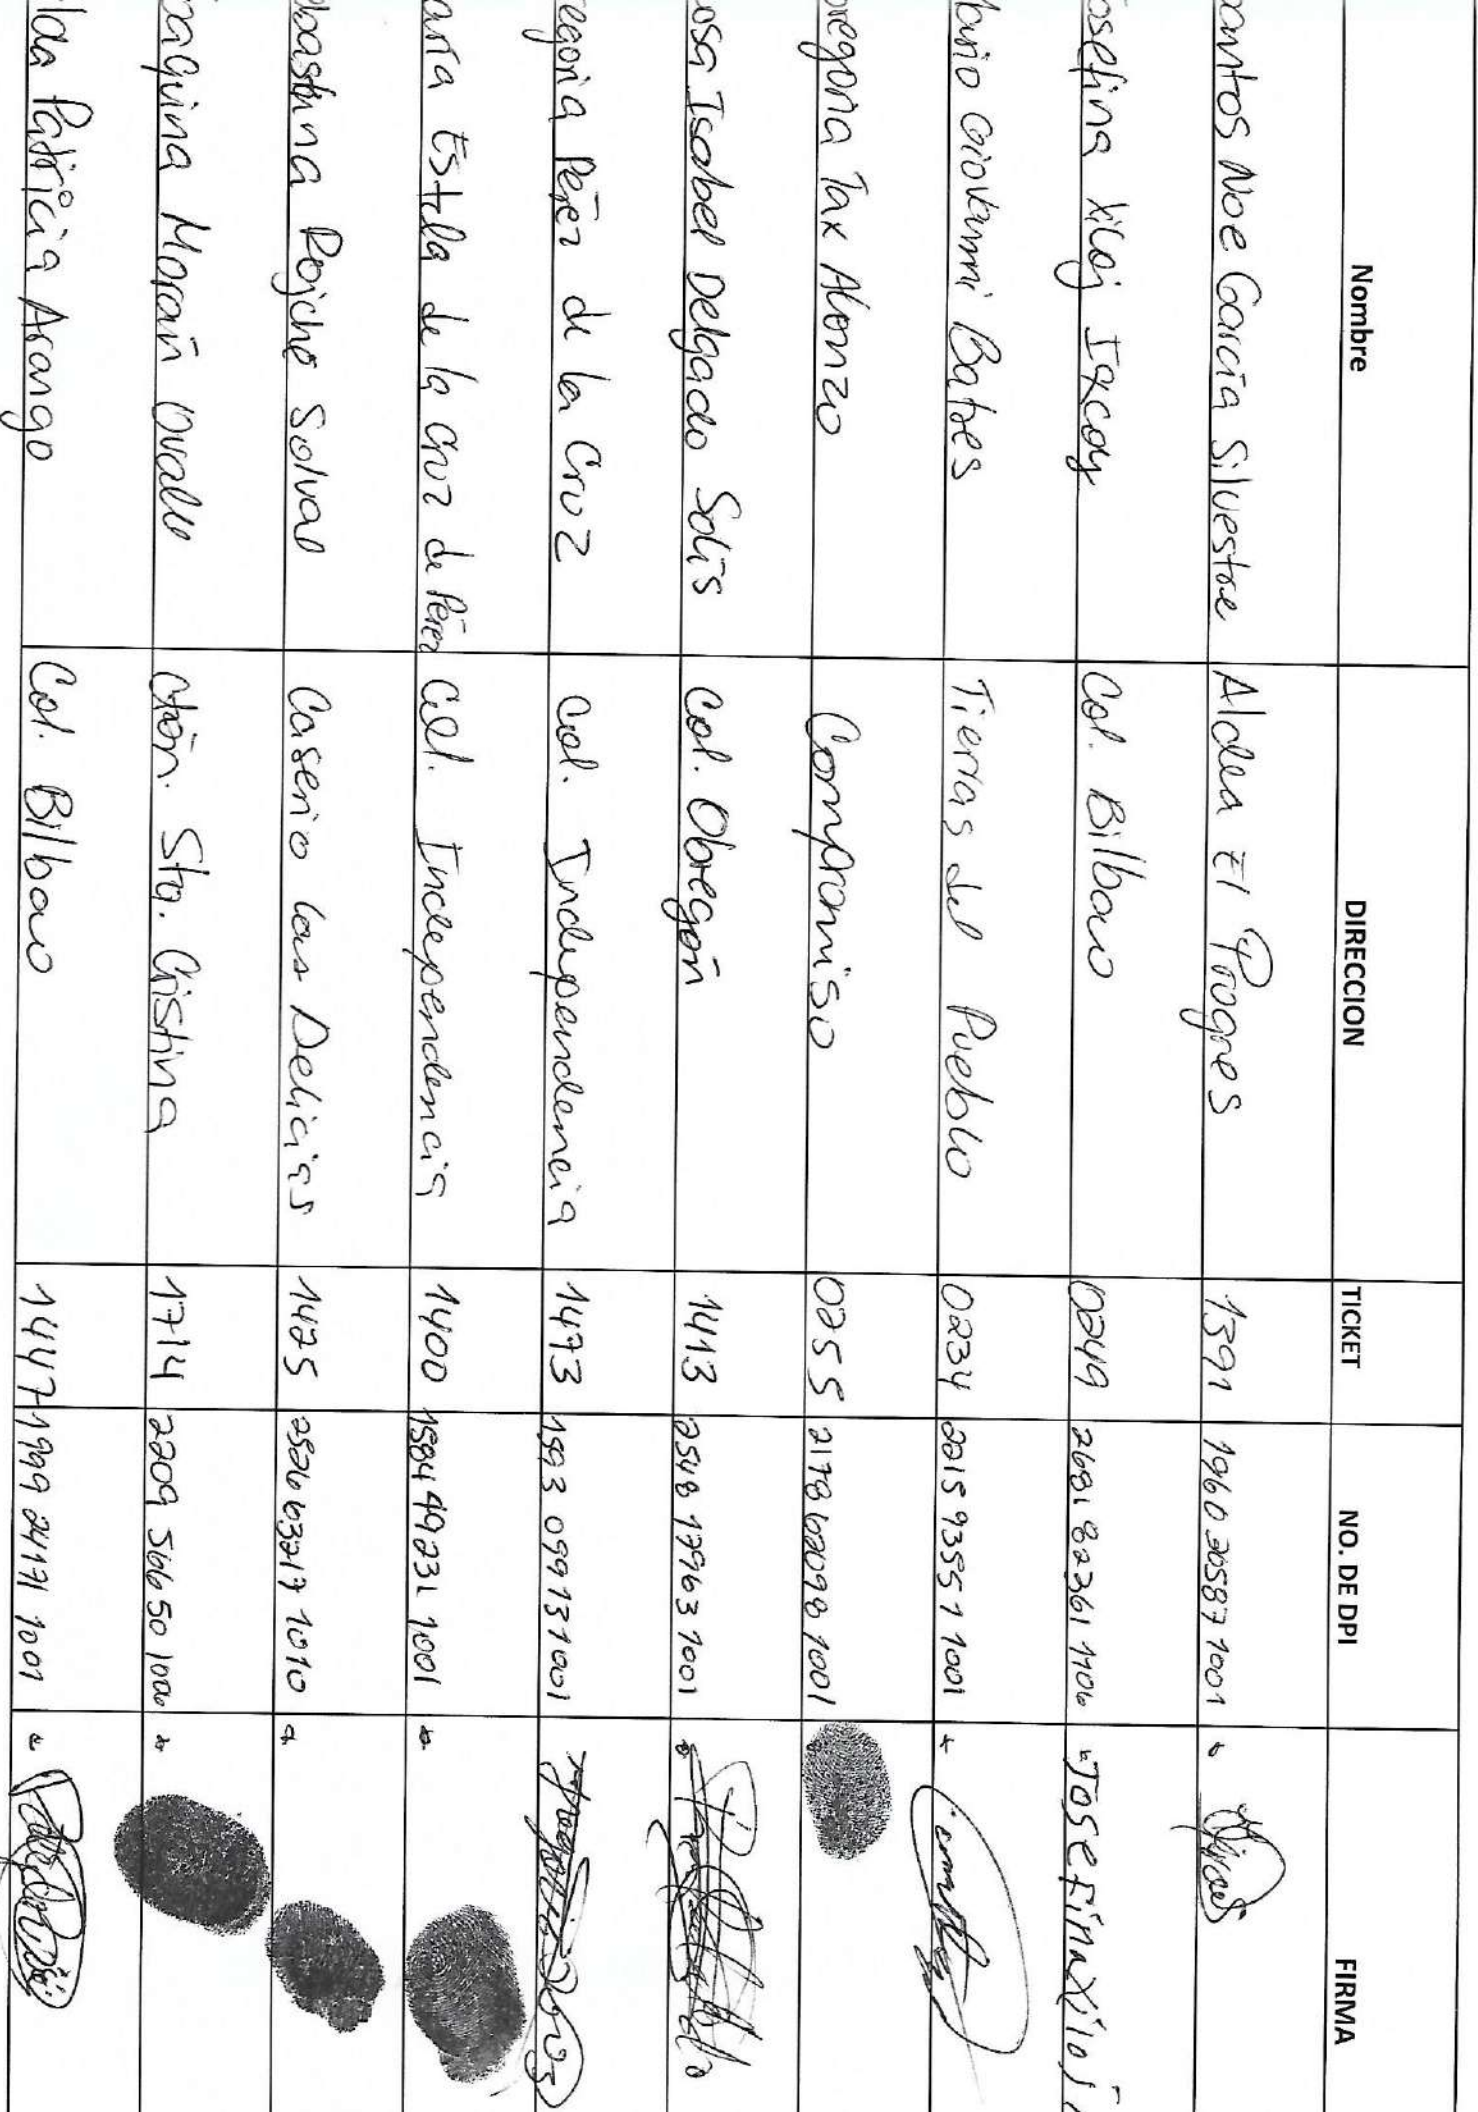 Nombre DIRECCION TICKET NO. DE DPI FIRMA
Noe García Silvestre Aldea El Progres 1391 1960 20587 1001
Xiloj Ixcoy Col. Bilbao 0249 2681 82361 1106 Josefina Xiloj
Giovanni Batres Tierras del Pueblo 0234 2015 93551 1001
Tax Alonzo Compromiso 0255 2178 62098 1001
Isabel Delgado Solís Col. Obregón 1413 2548 17963 1001
Pérez de la Cruz Col. Independencia 1473 1593 09913 1001
Estela de la Cruz de Pérez Col. Independencia 1400 1584 49231 1001
Caserio Las Delicias 1425 2526 63217 1010
Morań Ovalle Ctón. Sta. Cristina 1714 2209 56650
Patricia Arango Col. Bilbao 1447 1999 24171 1001